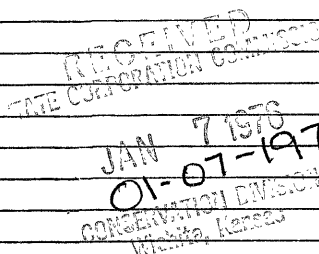 RECEIVED
TATE CORPORATION COMMISSIO
JAN 7 1976
01-07-197
CONSERVATION DIVISION
Wichita, Kansas